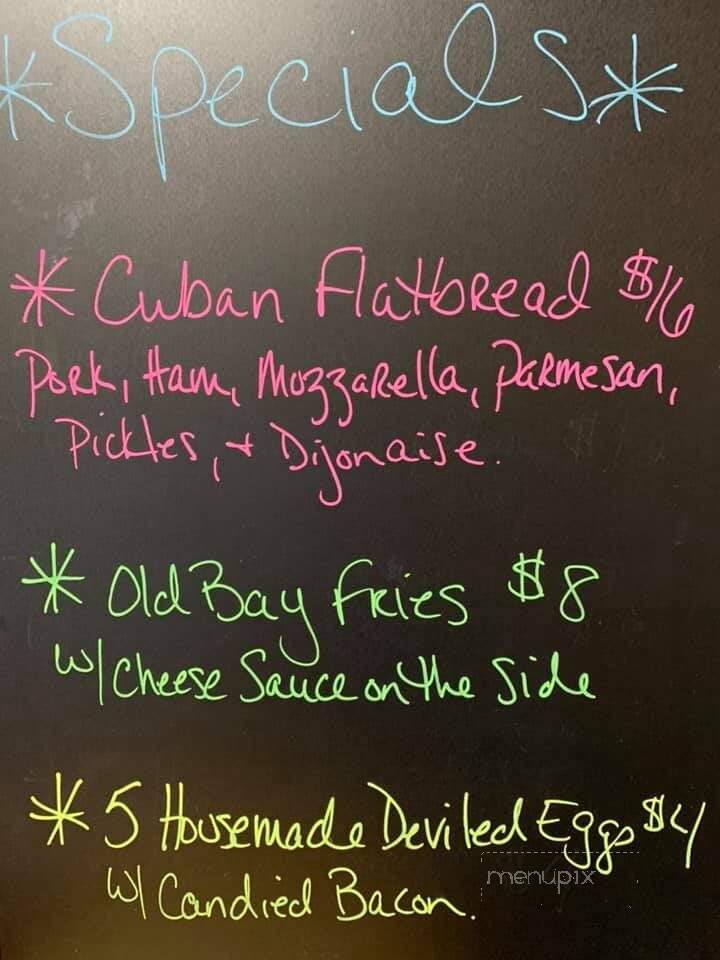 *Specials*
* Cuban Flatbread $16
Pork, Ham, Mozzarella, Parmesan,
Pickles, + Dijonaise.
* Old Bay Fries $8
w/ Cheese Sauce on the Side
* 5 Housemade Deviled Eggs $4
menupix
w/ Candied Bacon.